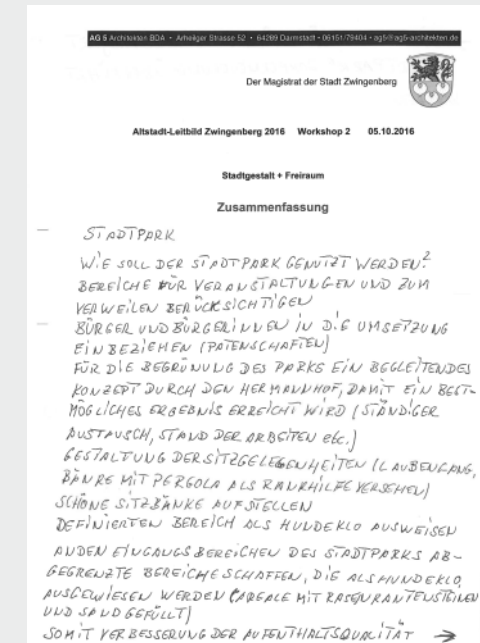 AG 5 Architekten BDA • Arheilger Strasse 52 • 64289 Darmstadt • 06151/79404 • ag5@ag5-architekten.de
Der Magistrat der Stadt Zwingenberg
Altstadt-Leitbild Zwingenberg 2016 Workshop 2 05.10.2016
Stadtgestalt + Freiraum
Zusammenfassung
STADTPARK
WIE SOLL DER STADTPARK GENUTZT WERDEN?
BEREICHE FÜR VERANSTALTUNGEN UND ZUM
VERWEILEN BERÜCKSICHTIGEN
BÜRGER UND BÜRGERINNEN IN DIE UMSETZUNG
EINBEZIEHEN (PATENSCHAFTEN)
FÜR DIE BEGRÜNUNG DES PARKS EIN BEGLEITENDES
KONZEPT DURCH DEN HERMANNHOF, DAMIT EIN BEST-
MÖGLICHES ERGEBNIS ERREICHT WIRD (STÄNDIGER
AUSTAUSCH, STAND DER ARBEITEN etc.)
GESTALTUNG DER SITZGELEGENHEITEN (LAUBENGANG,
BÄNKE MIT PERGOLA ALS RANKHILFE VERSEHEN)
SCHÖNE SITZBÄNKE AUFSTELLEN
DEFINIERTEN BEREICH ALS HUNDEKLO AUSWEISEN
AN DEN EINGANGSBEREICHEN DES STADTPARKS AB-
GEGRENZTE BEREICHE SCHAFFEN, DIE ALS HUNDEKLO
AUSGEWIESEN WERDEN (AREALE MIT RASENKANTENSTEINEN
UND SAND GEFÜLLT)
SOMIT VERBESSERUNG DER AUFENTHALTSQUALITÄT →